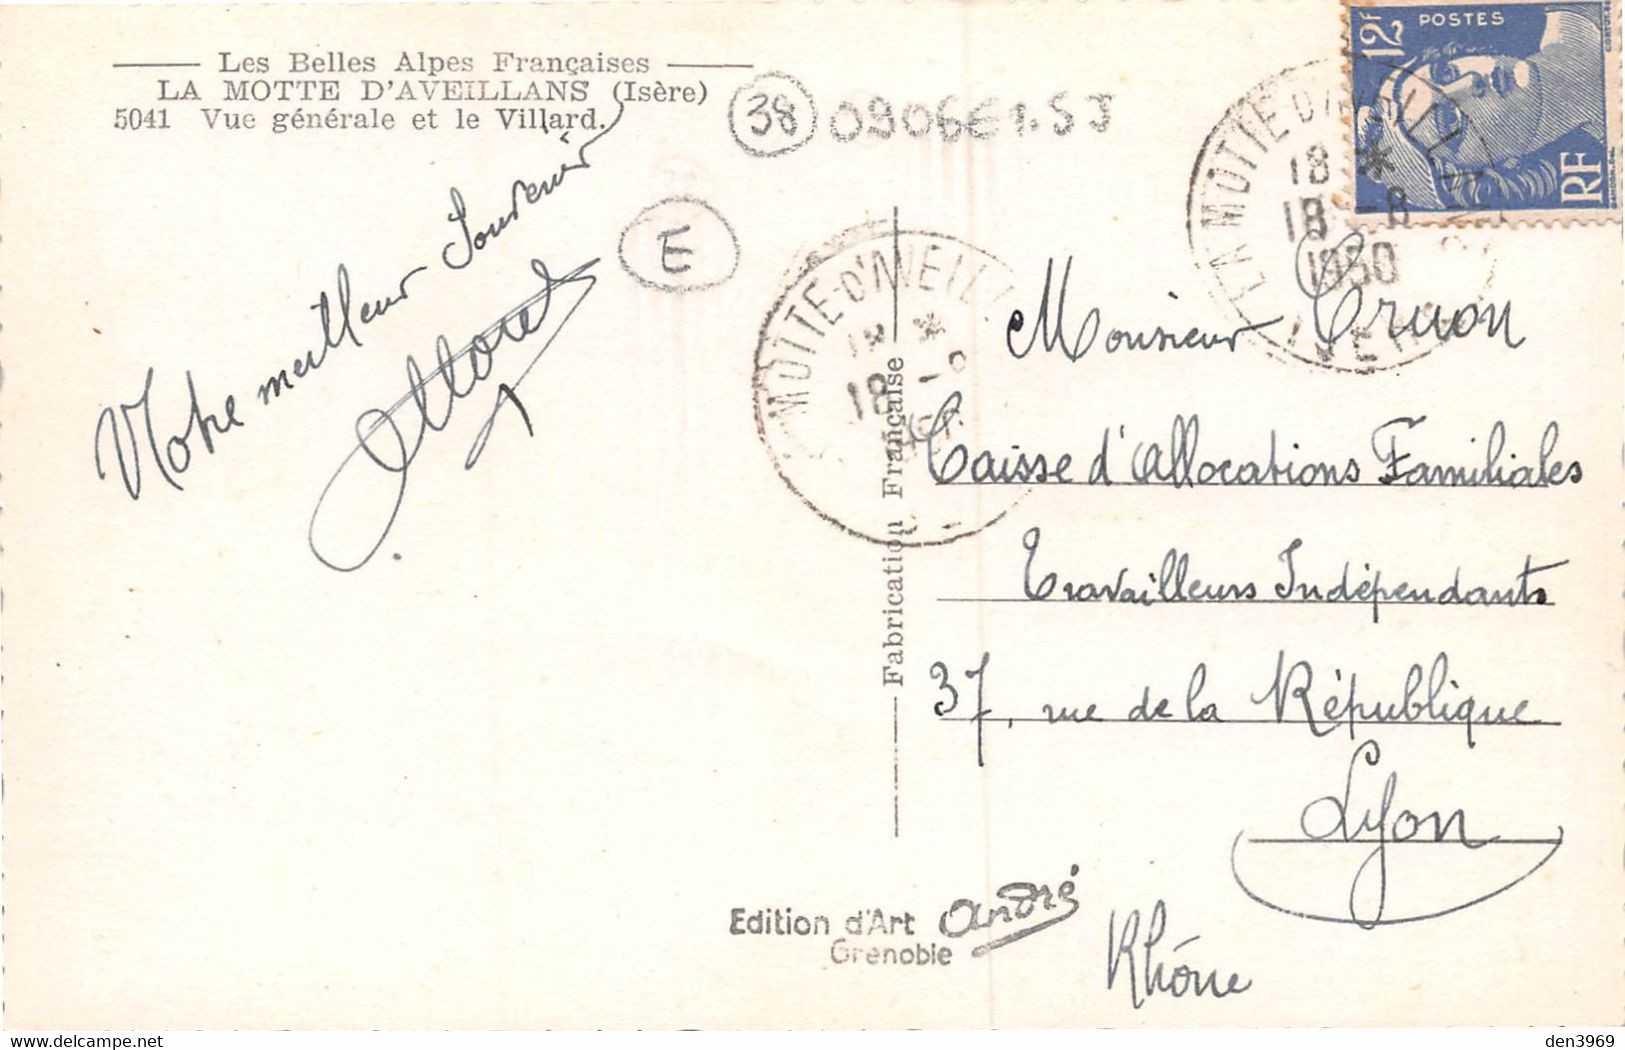 Les Belles Alpes Françaises
LA MOTTE D'AVEILLANS (Isère)
5041 Vue générale et le Villard.
38
E
Notre meilleur Souvenir
MOTTE-D'AVEILL
18 *
18
Fabrication Française
12F
POSTES
RF
LA MOTTE D'AVEILLANS
18 *
18 -8
1950
ISERE
Monsieur Cruon
Caisse d'Allocations Familiales
Travailleurs Indépendants
37, rue de la République
Lyon
Rhône
Edition d'Art André
Grenoble
delcampe.net
den3969